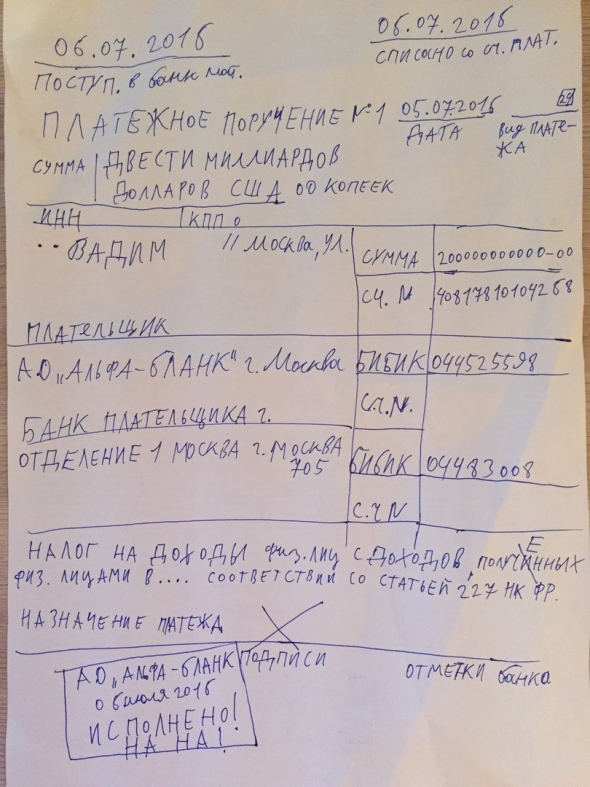 06.07.2016
06.07.2016
ПОСТУП. в банк мат.
СПИСАНО СО СЧ. ПЛАТ.
ПЛАТЕЖНОЕ ПОРУЧЕНИЕ №1 05.07.2016 29
ДАТА
ВИД ПЛАТЕ-
ЖА
СУММА ДВЕСТИ МИЛЛИАРДОВ
ДОЛЛАРОВ США 00 КОПЕЕК
ИНН КПП 0
ВАДИМ // МОСКВА, УЛ.
СУММА 200000000000-00
СЧ. N 40817810104268
ПЛАТЕЛЬЩИК
АО „АЛЬФА-БЛАНК" г. МОСКВА БИБИК 044525598
СЧ. N.
БАНК ПЛАТЕЛЬЩИКА г.
ОТДЕЛЕНИЕ 1 МОСКВА г. МОСКВА
705
БИБИК 04483008
С.Ч N
НАЛОГ НА ДОХОДЫ физ. лиц С ДОХОДОВ, ПОЛУЧЕННЫХ
ФИЗ. ЛИЦАМИ В.... СООТВЕТСТВИИ СО СТАТЬЕЙ 227 НК ФР.
НАЗНАЧЕНИЕ ПАТЕЖА
АО „АЛЬФА-БЛАНК
06 июля 2016
ИСПОЛНЕНО!
НА НА!
ПОДПИСИ
ОТМЕТКИ банка